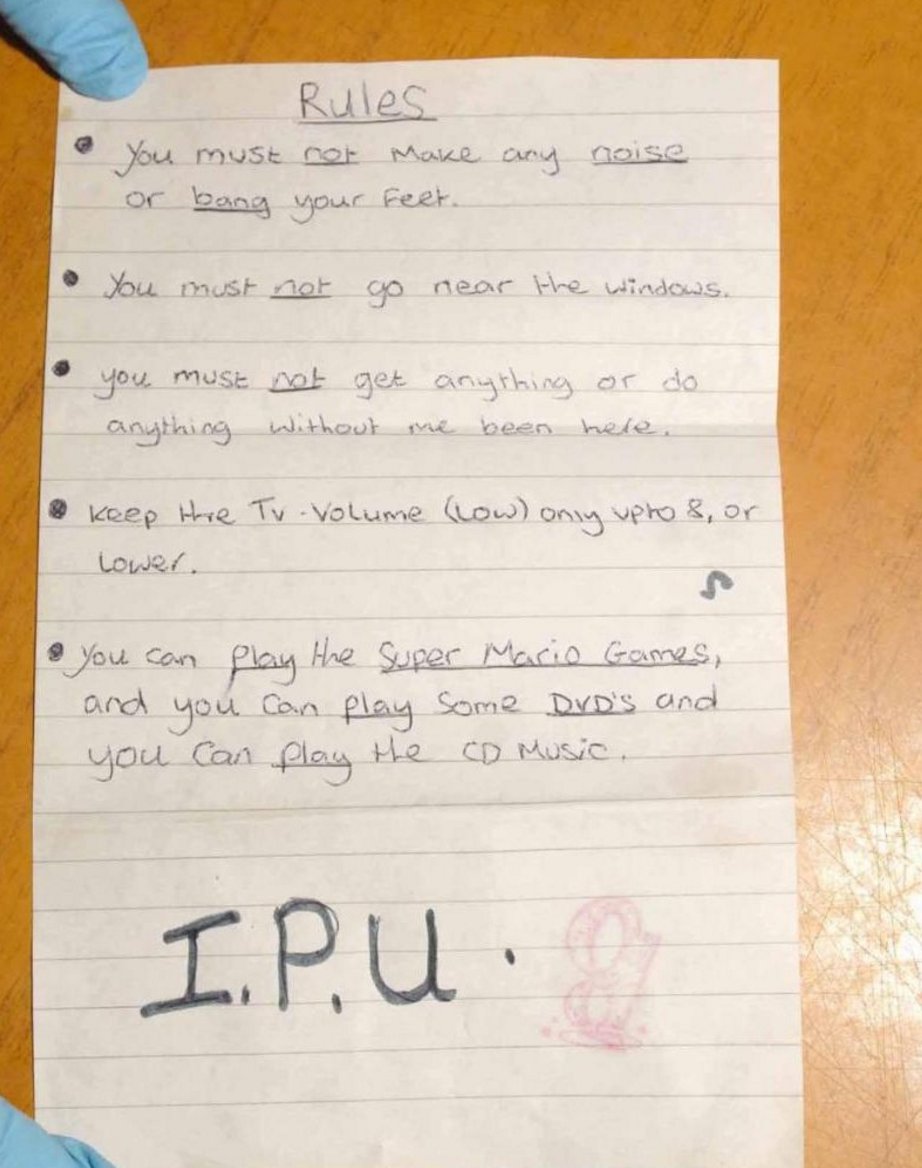 Rules
• You must not make any noise
or bang your feet.
• You must not go near the windows.
• you must not get anything or do
anything without me been here.
• Keep the Tv-Volume (Low) only upto 8, or
Lower.
• You can play the Super Mario Games,
and you can play some DVD's and
you can play the CD Music.
I.P.U.